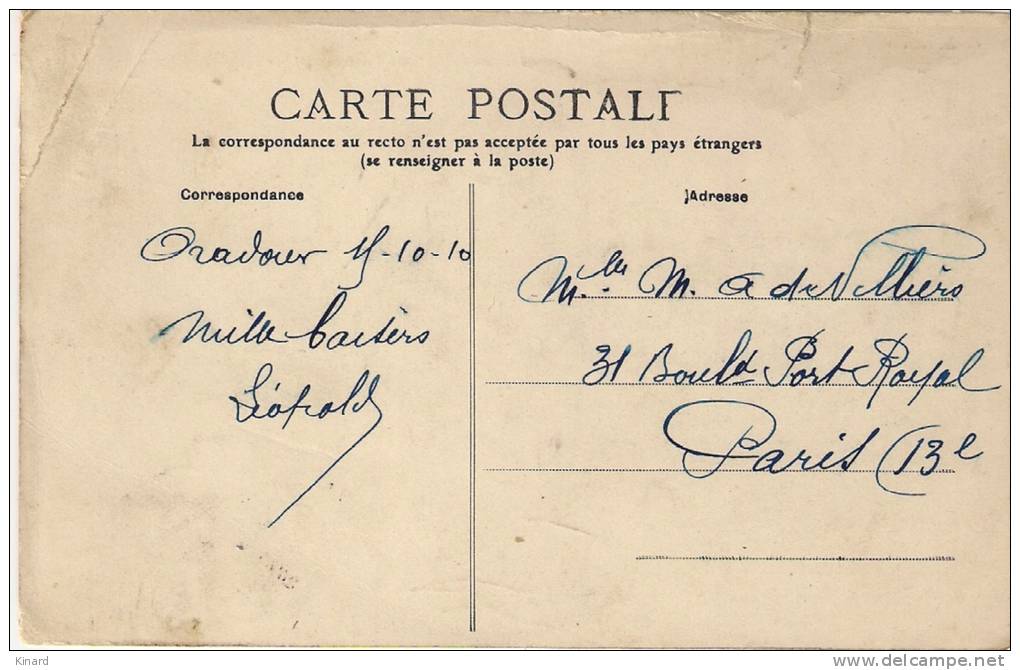 CARTE POSTALE
La correspondance au recto n'est pas acceptée par tous les pays étrangers
(se renseigner à la poste)
Correspondance
Adresse
Oradour 15-10-10
Mille baisers
Léopold
Mlles M. & A de Villiers
31 Bould Port Royal
Paris (13e
Kinard
delcampe.net